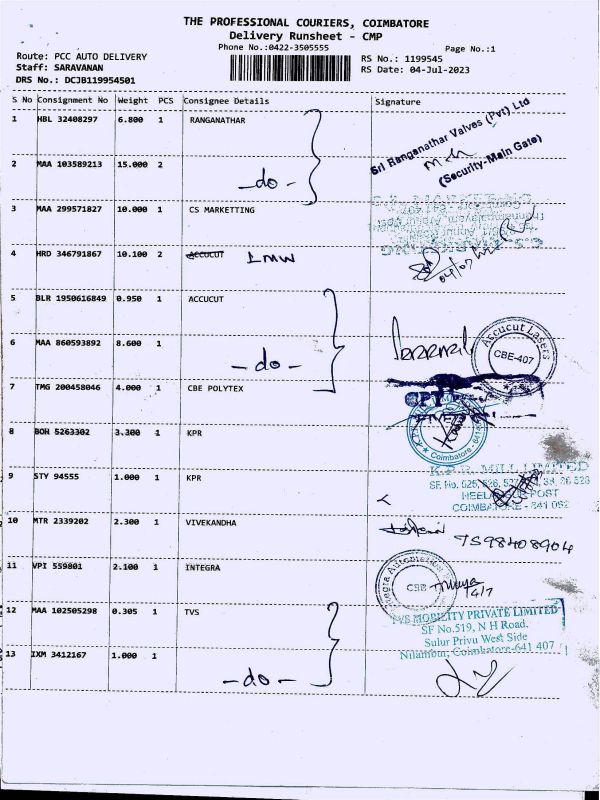 THE PROFESSIONAL COURIERS, COIMBATORE
Delivery Runsheet - CMP
Phone No.:0422-3505555
Page No.:1
Route: PCC AUTO DELIVERY
RS No.: 1199545
Staff: SARAVANAN
RS Date: 04-Jul-2023
DRS No.: DCJB119954501
S No Consignment No Weight PCS Consignee Details Signature
1 HBL 32408297 6.800 1 RANGANATHAR
Sri Ranganathar Valves (Pvt) Ltd
(Security-Main Gate)
2 MAA 103589213 15.000 2 -do-
3 MAA 299571827 10.000 1 CS MARKETTING
4 HRD 346791867 10.100 2 ACCUCUT LMW
04/07
5 BLR 1950616849 0.950 1 ACCUCUT
Accucut Lasers
CBE-407
6 MAA 860593892 8.600 1 -do-
7 TMG 200458046 4.000 1 CBE POLYTEX
8 BOH 5263302 3.300 1 KPR
Coimbatore - 641
K.P.R. MILL LIMITED
9 STY 94555 1.000 1 KPR
SF. No. 525, 526,
POST
COIMBATORE - 641 062
10 MTR 2339202 2.300 1 VIVEKANDHA
7598408904
11 VPI 559801 2.100 1 INTEGRA
4/7
12 MAA 102505298 0.305 1 TVS
TVS MOBILITY PRIVATE LIMITED
SF No.519, N H Road.
Sulur Privu West Side
Nilambur, Coimbatore-641 407
13 IXM 3412167 1.000 1 -do-